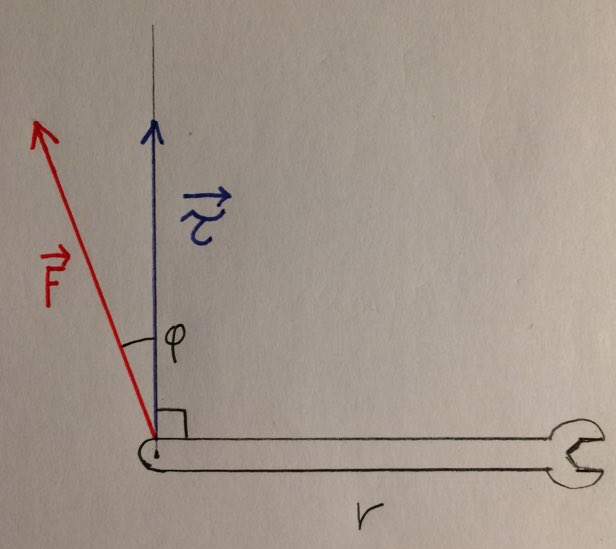 F⃗
τ⃗
φ
r